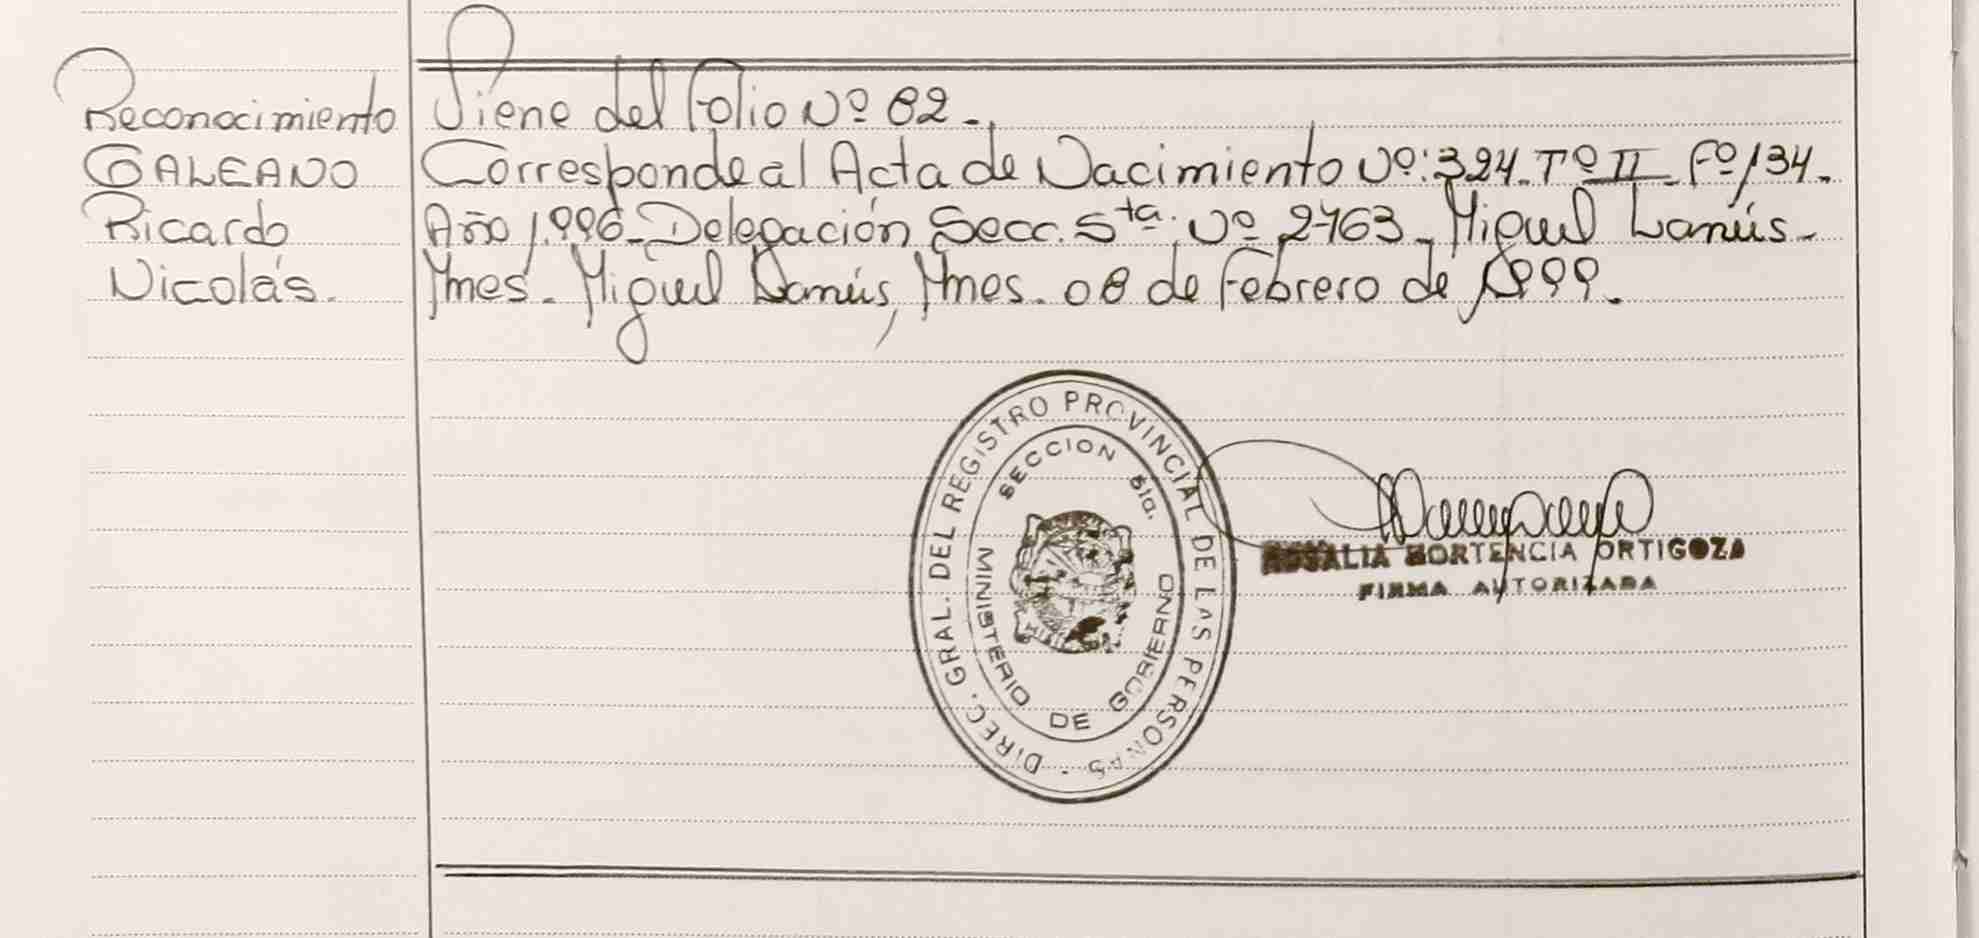 Reconocimiento
GALEANO
Ricardo
Nicolás.
Viene del folio Nº 82.
Corresponde al Acta de Nacimiento Nº: 324. Tº II Fº 134.
Año 1.996. Delegación Secc. 5ta. Nº 2763. Miguel Lanús.
Mnes. Miguel Lanús, Mnes. 08 de Febrero de 1999.
DIREC. GRAL. DEL REGISTRO PROVINCIAL DE LAS PERSONAS -
SECCION 5ta.
MINISTERIO DE GOBIERNO
ROSALIA HORTENCIA ORTIGOZA
FIRMA AUTORIZADA